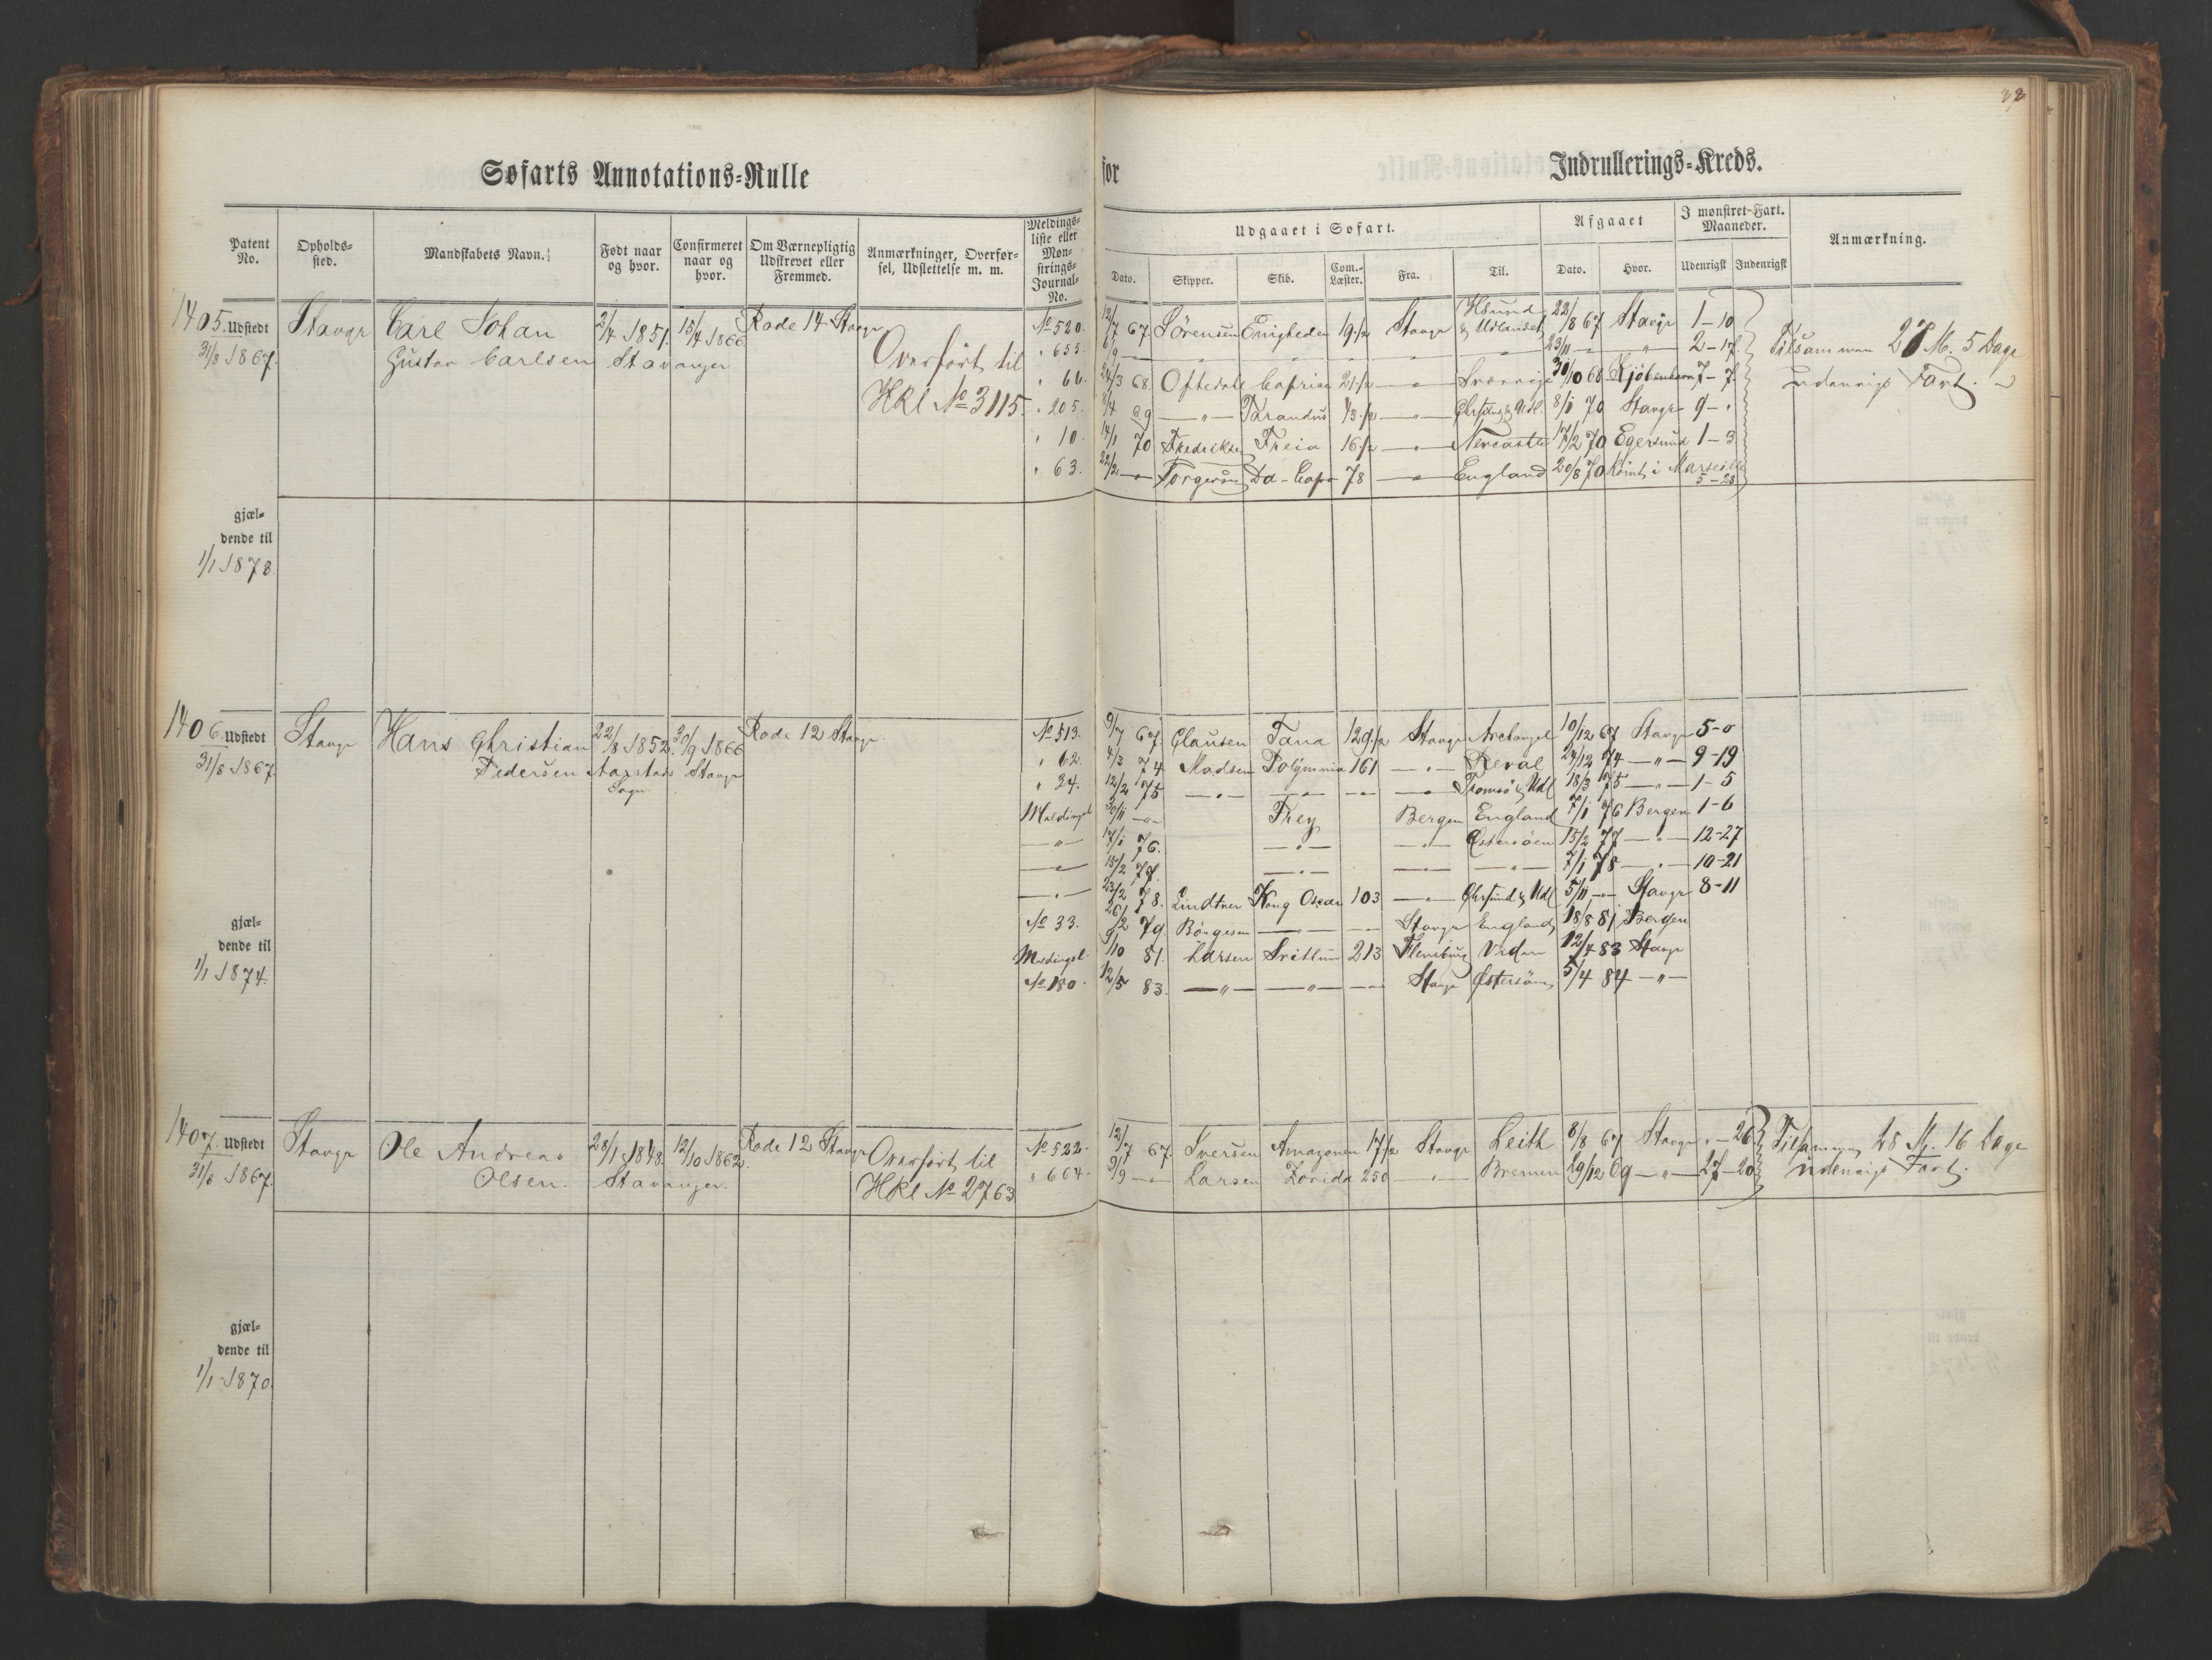 Søfarts Annotations-Rulle for Indrullerings-Kreds.
Patent No. Opholds-sted. Mandskabets Navn. Født naar og hvor. Confirmeret naar og hvor. Om Værnepligtig Udskrevet eller Fremmed. Anmærkninger, Overførsel, Udslettelse m. m. Meldingsliste eller Mønstrings-Journal-No.
Udgaaet i Søfart. Afgaaet I mønstret-Fart. Maaneder. Anmærkning.
Dato. Skipper. Skib. Com.-Læster. Fra. Til. Dato. Hvor. Udenrigsk Indenrigsk
1405. Udstedt 31/8 1867. Stavgr Carl Johan Gustav Carlsen 2/4 1851. Stavanger 15/4 1866 Rode 14 Stavgr Overført til HRl No 3115.
No 520. 12/7 67. Sörensen Enigheden 19 1/2 Stavgr & Udlandet 22/8 67 Stavgr 1-10
" 655. 6/9 — 23/11 — " 2-17
" 66. 24/3 68. Oftedal Caprice 21 1/2 — Sverrige 30/10 68 Kjöbenhavn 7-7
" 205. 8/4 69 — " — Tarandus — 8/1 70 Stavgr 9-"
" 10. 14/1 70 Fredriksen Freia 16 1/2 — Newcastle 17/2 70 Egersund 1-3
" 63. 22/2 — Torgersen 78 — England 20/8 70 Römt i Marseille 5-28
Tilsammen 27 M. 5 Dage
Udenrigs Fart.
gjæl-
dende til
1/1 1873
1406. Udstedt 31/8 1867. Stavgr Hans Christian Pedersen 22/8 1852. Aarstad Sogn 30/9 1866 Stavgr Rode 12 Stavgr.
No 513. 9/7 67. Clausen Tana 129 1/2 Stavgr Archangel 10/12 67 Stavgr 5-0
" 62. 4/3 74 Madsen Polÿmnia 161 — " — Reval 24/12 74 — " — 9-19
" 34. 12/2 75 — " — Tromsö & Udl 18/3 75 — " — 1-5
Meldingsl 30/11 — " — Frey Bergen England 7/1 76 Bergen 1-6
— " — 17/1 76. — " — — " — Östersöen 15/2 77 — " — 12-27
— " — 15/2 77. — " — — " — 7/1 78 — " — 10-21
— " — 23/2 78. Lindtner Kong Oscar 103 — " — Chrsund & Udl 5/11 — Stavgr 8-11
No 33. 26/2 79. Börgesen — Stavgr England 18/8 81 Bergen
Meldingsl. 3/10 81. Larsen Svithun 213 Flensburg 12/4 83 Stavgr
No 180. 12/5 83. — " — — " — Stavgr Östersöen 5/4 84 — " —
gjæl-
dende til
1/1 1874.
1407. Udstedt 31/8 1867. Stavgr Ole Andreas Olsen. 28/1 1848. Stavanger. 12/10 1862. Rode 12 Stavgr Overført til HRl No 2763
No 522. 12/7 67. Iversen Amazonen 17 1/2 Stavgr Leith 8/8 67 Stavgr "-26
" 664. 9/9 — Larsen Zorida 250 — " — Bremen 19/12 69 — " — 27-20
Tilsammen 28 M. 16 Dage
Udenrigs Fart.
gjæl-
dende til
1/1 1870.